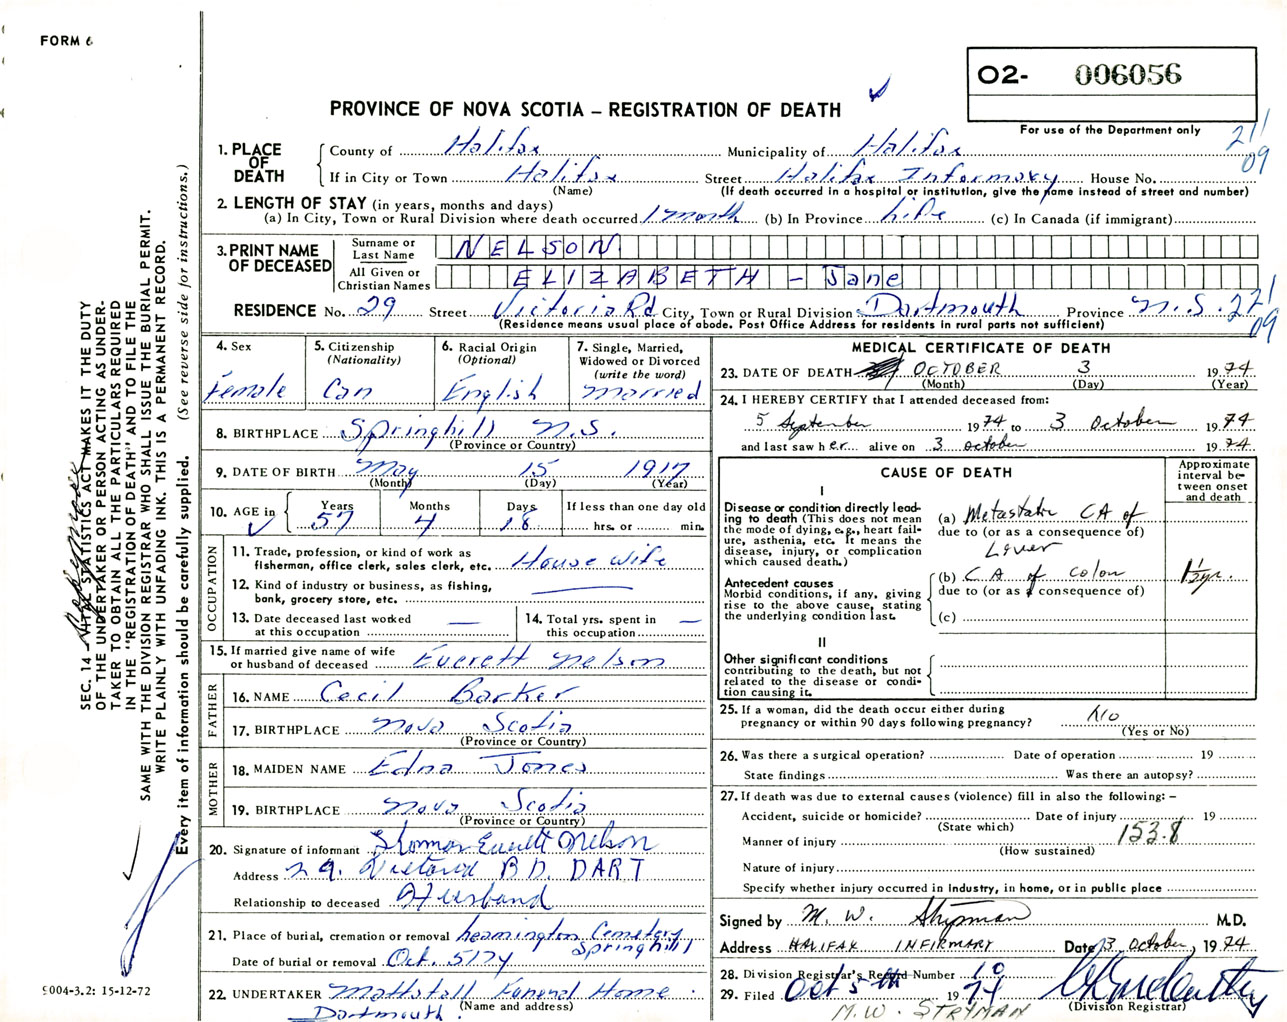 FORM 6
O2- 006056
PROVINCE OF NOVA SCOTIA – REGISTRATION OF DEATH
For use of the Department only
211
09
1. PLACE OF DEATH
County of Halifax Municipality of Halifax
If in City or Town Halifax Street Halifax Informary House No.
(Name) (If death occurred in a hospital or institution, give the name instead of street and number)
2. LENGTH OF STAY (in years, months and days)
(a) In City, Town or Rural Division where death occurred 1 month (b) In Province Life (c) In Canada (if immigrant)
3. PRINT NAME OF DECEASED
Surname or Last Name NELSON
All Given or Christian Names ELIZABETH - Jane
RESIDENCE No. 29 Street Victoria Rd City, Town or Rural Division Dartmouth Province N.S. 221
09
(Residence means usual place of abode. Post Office Address for residents in rural parts not sufficient)
4. Sex
Female
5. Citizenship (Nationality)
Can
6. Racial Origin (Optional)
English
7. Single, Married, Widowed or Divorced (write the word)
Married
8. BIRTHPLACE Springhill N.S.
(Province or Country)
9. DATE OF BIRTH May 15 1917
(Month) (Day) (Year)
10. AGE in Years Months Days If less than one day old
57 4 18 hrs. or min.
OCCUPATION
11. Trade, profession, or kind of work as fisherman, office clerk, sales clerk, etc. House wife
12. Kind of industry or business, as fishing, bank, grocery store, etc.
13. Date deceased last worked at this occupation —
14. Total yrs. spent in this occupation —
15. If married give name of wife or husband of deceased Everett Nelson
FATHER
16. NAME Cecil Barker
17. BIRTHPLACE Nova Scotia
(Province or Country)
MOTHER
18. MAIDEN NAME Edna Jones
19. BIRTHPLACE Nova Scotia
(Province or Country)
20. Signature of informant Everett Nelson
Address 29. Victoria RD. DART
Relationship to deceased Husband
21. Place of burial, cremation or removal Leamington Cemetery Springhill
Date of burial or removal Oct. 5 1974
22. UNDERTAKER Mattatall Funeral Home
(Name and address)
Dartmouth.
MEDICAL CERTIFICATE OF DEATH
23. DATE OF DEATH OCTOBER 3 1974
(Month) (Day) (Year)
24. I HEREBY CERTIFY that I attended deceased from:
5 September 1974 to 3 October 1974
and last saw her alive on 3 October 1974
CAUSE OF DEATH
Approximate interval between onset and death
I
Disease or condition directly leading to death (This does not mean the mode of dying, e.g., heart failure, asthenia, etc. It means the disease, injury, or complication which caused death.)
(a) Metastatic CA of
due to (or as a consequence of)
Liver
Antecedent causes
Morbid conditions, if any, giving rise to the above cause, stating the underlying condition last.
(b) CA of colon 1 1/2 yr.
due to (or as a consequence of)
(c)
II
Other significant conditions
contributing to the death, but not related to the disease or condition causing it.
25. If a woman, did the death occur either during pregnancy or within 90 days following pregnancy? No
(Yes or No)
26. Was there a surgical operation? Date of operation 19
State findings Was there an autopsy?
27. If death was due to external causes (violence) fill in also the following: –
Accident, suicide or homicide? Date of injury 19
(State which)
Manner of injury 153.8
(How sustained)
Nature of injury
Specify whether injury occurred in industry, in home, or in public place
Signed by M. W. Stryman M.D.
Address HALIFAX INFIRMARY Date 3 October, 1974
28. Division Registrar's Record Number 10
29. Filed Oct 5th 1974
(Division Registrar)
M.W. STRYMAN
SEC. 14 VITAL STATISTICS ACT MAKES IT THE DUTY
OF THE UNDERTAKER OR PERSON ACTING AS UNDER-
TAKER TO OBTAIN ALL THE PARTICULARS REQUIRED
IN THE "REGISTRATION OF DEATH" AND TO FILE THE
SAME WITH THE DIVISION REGISTRAR WHO SHALL ISSUE THE BURIAL PERMIT.
WRITE PLAINLY WITH UNFADING INK. THIS IS A PERMANENT RECORD.
Every item of information should be carefully supplied. (See reverse side for instructions.)
9004-3.2: 15-12-72